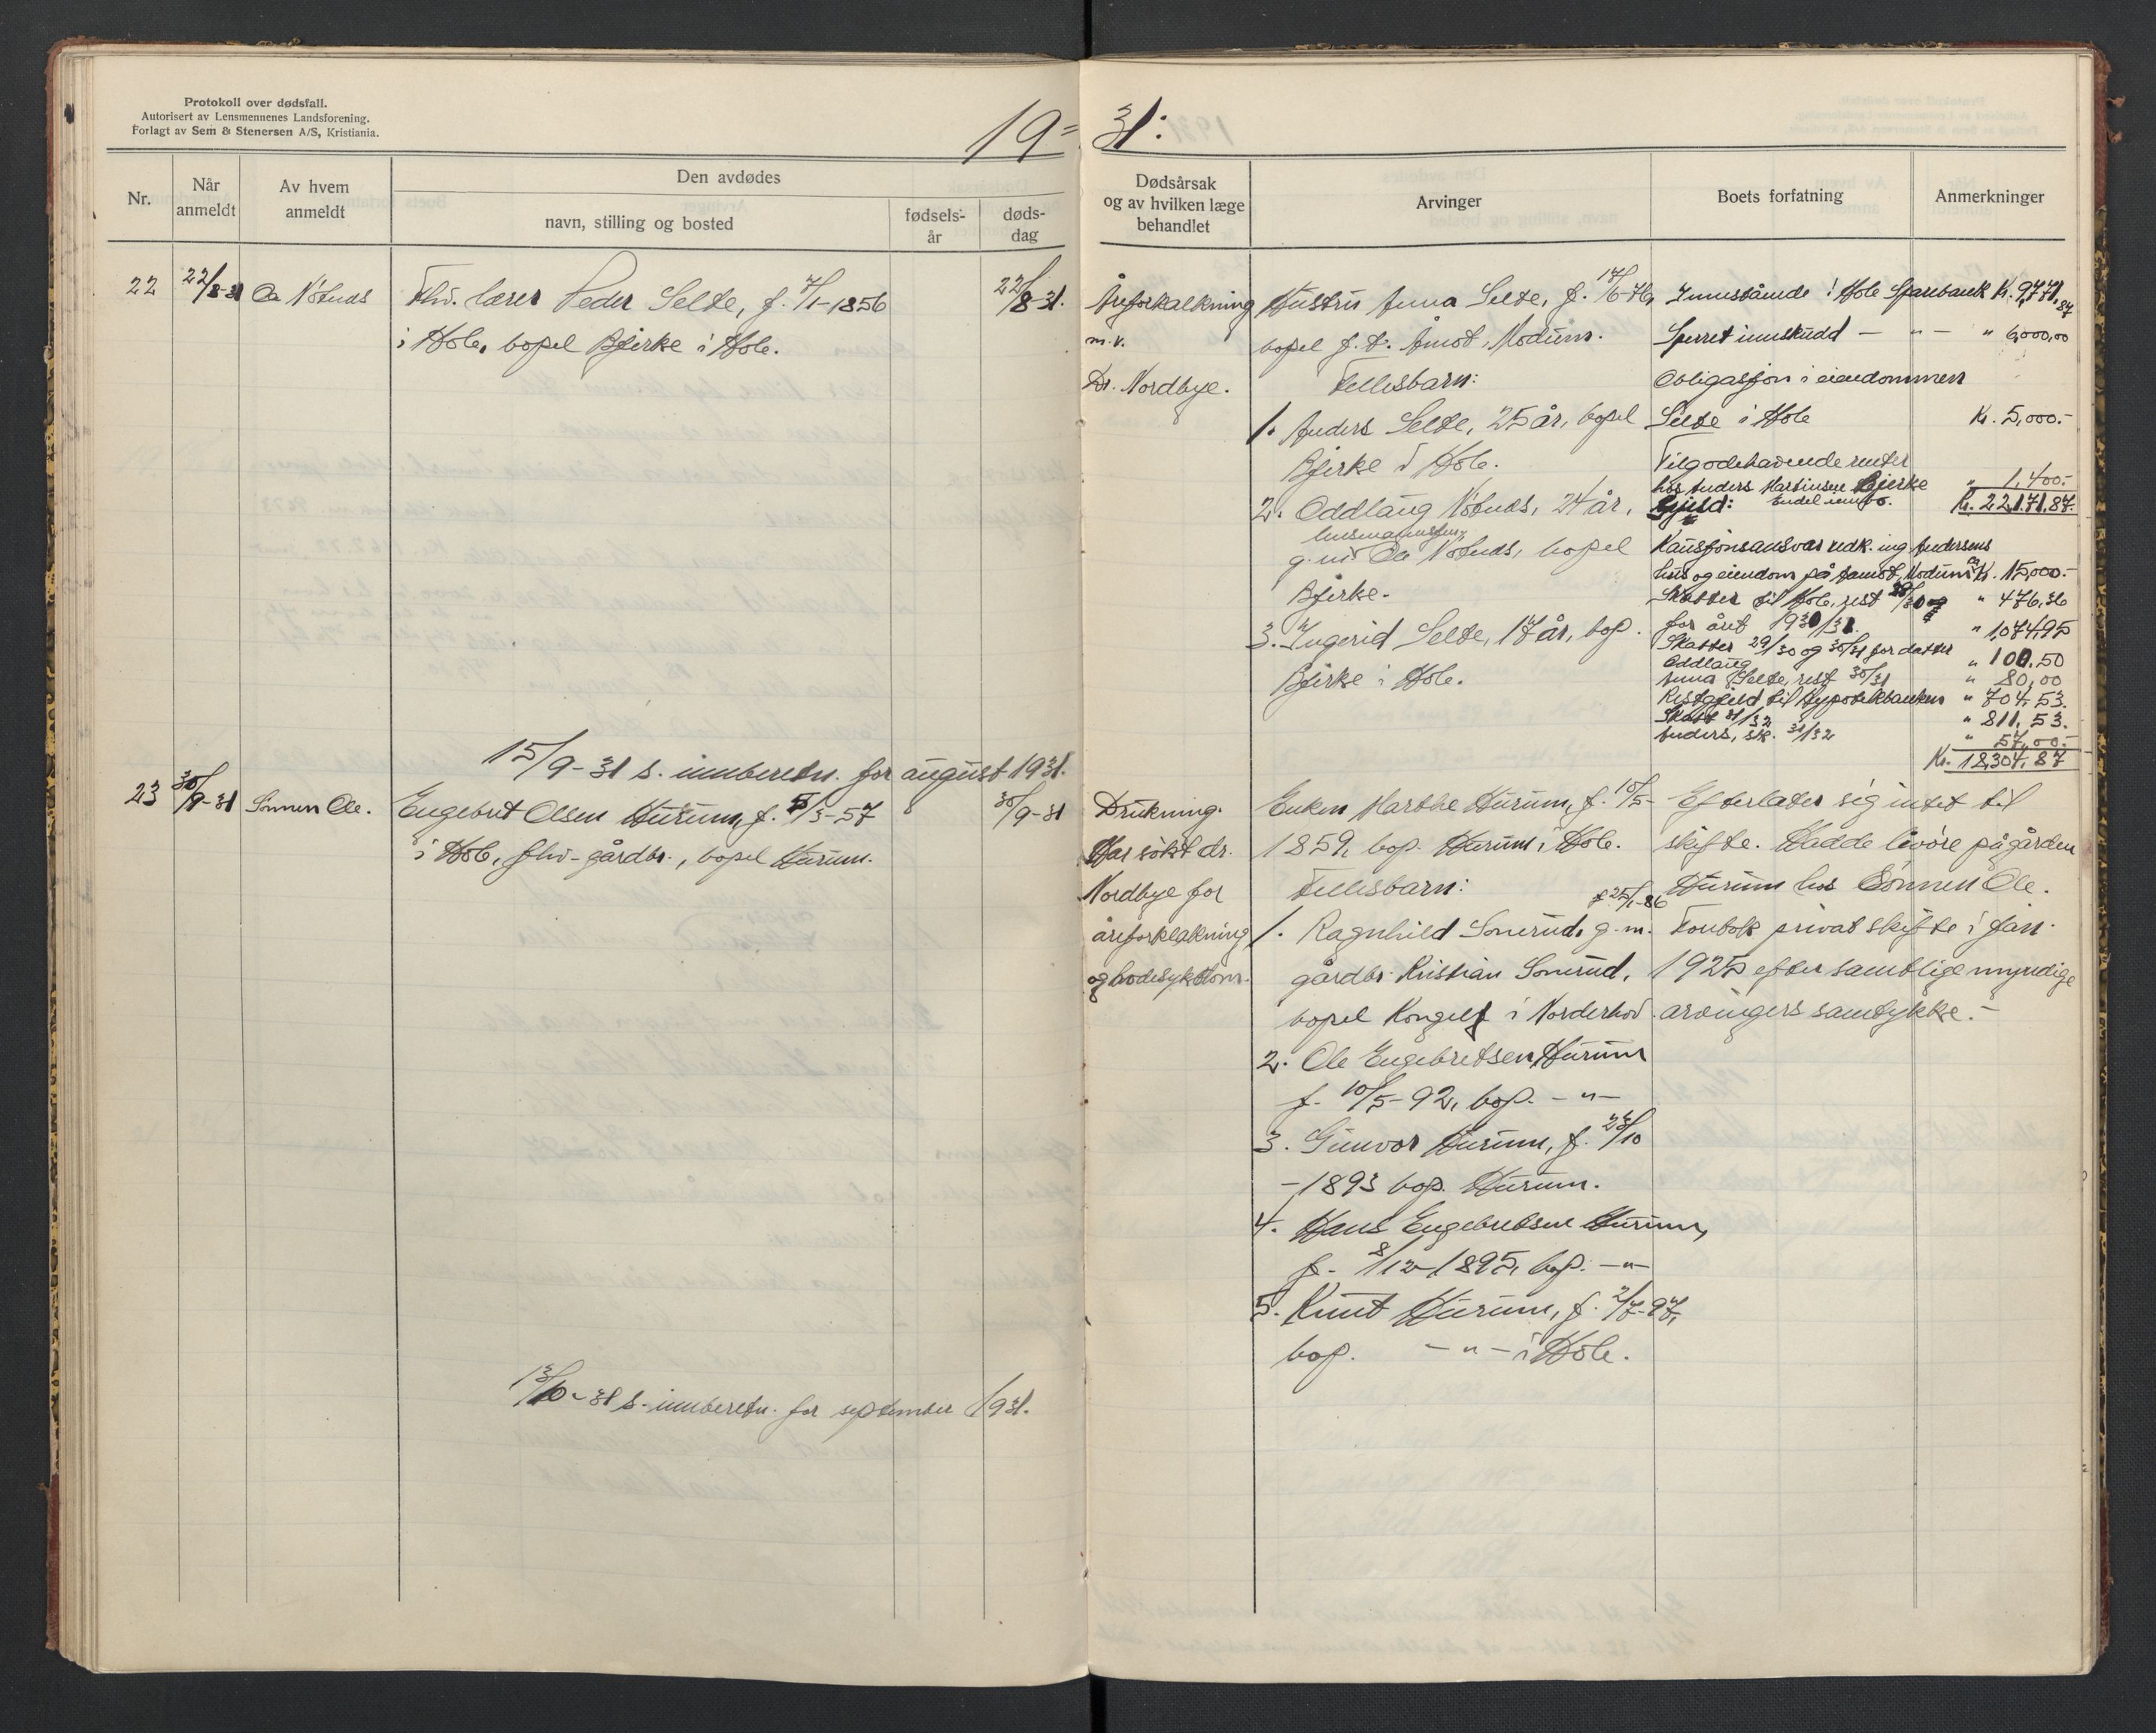 Protokoll over dødsfall.
Autorisert av Lensmennenes Landsforening.
Forlagt av Sem & Stenersen A/S, Kristiania.
19= 31:
Nr.
Når anmeldt
Av hvem anmeldt
Den avdødes
navn, stilling og bosted
fødsels-år
døds-dag
Dødsårsak og av hvilken læge behandlet
Arvinger
Boets forfatning
Anmerkninger
22
22/8-31
Fhv. lærer Peder Selte, f. 7/1-1856
i Hole, bopel Bjerke i Hole.
22/8-31.
Åreforkalkning
m.v.
Dr. Nordbye.
Hustru Anna Selte, f. 17/6-76,
bopel f.t. Åmot, Modum.
Fellesbarn:
1. Anders Selte, 25 år, bopel
Bjerke i Hole.
2. Oddlaug Nøtnes, 24 år,
g.m. Ola Nøtnes, bopel
Bjerke.
3. Ingerid Selte, 17 år, bop.
Bjerke i Hole.
Innestående i Hole Sparebank Kr. 9,771,87
Sperret innskudd — " — " 6,000,00
Obligasjon i eiendommen
Selte i Hole Kr. 5,000.-
Tilgodehavende renter
hos Anders Martinsen Bjerke " 1,400.-
Gjeld: Endel innbo. Kr. 22,171,87.
Kausjonsansvar vedk. ing Andersens
hus og eiendom på Aamot, Modum ca Kr. 15,000.-
Skatter til Hole, rest 29/30 og " 476,36
for året 1930/31. " 1,074,95
Skatter 29/30 og 30/31 for datter
Oddlaug " 100.50
Anna Selte, rest 30/31 " 80,00
Restgjeld til Hypotekbanken " 704,53.
Skatt 31/32 " 811,53.
Anders, sk. 31/32 " 57,00.-
Kr. 18,304,87
15/9-31 s. innberetn. for august 1931.
23
30/9-31
Sønnen Ole.
Engebret Olsen Hurum, f. 5/3-57
i Hole, fhv. gårdbr., bopel Hurum.
30/9-31
Drukning.
Har søkt dr.
Nordbye for
åreforklakning
og hodesykdom.
Enken Marthe Hurum, f. 10/5-
1859, bop. Hurum i Hole.
Fellesbarn:
f. 25/1-86
1. Ragnhild Sonerud, g.m.
gårdbr. Kristian Sonerud,
bopel Kongelf i Norderhov.
2. Ole Engebretsen Hurum
f. 10/5-92, bop. - " -
3. Gunvor Hurum, f. 23/10
-1893 bop. Hurum.
4. Hans Engebretsen Hurum,
f. 8/12-1895, bop. - " -
5. Knut Hurum, f. 2/7-97,
bop. - " - i Hole.
Efterlater sig intet til
skifte. Hadde livøre på gården
Hurum hos Sønnen Ole.
Foretok privat skifte i jan.
1925 efter samtlige myndige
arvingers samtykke.-
13/10-31 s. innberetn. for september 1931.